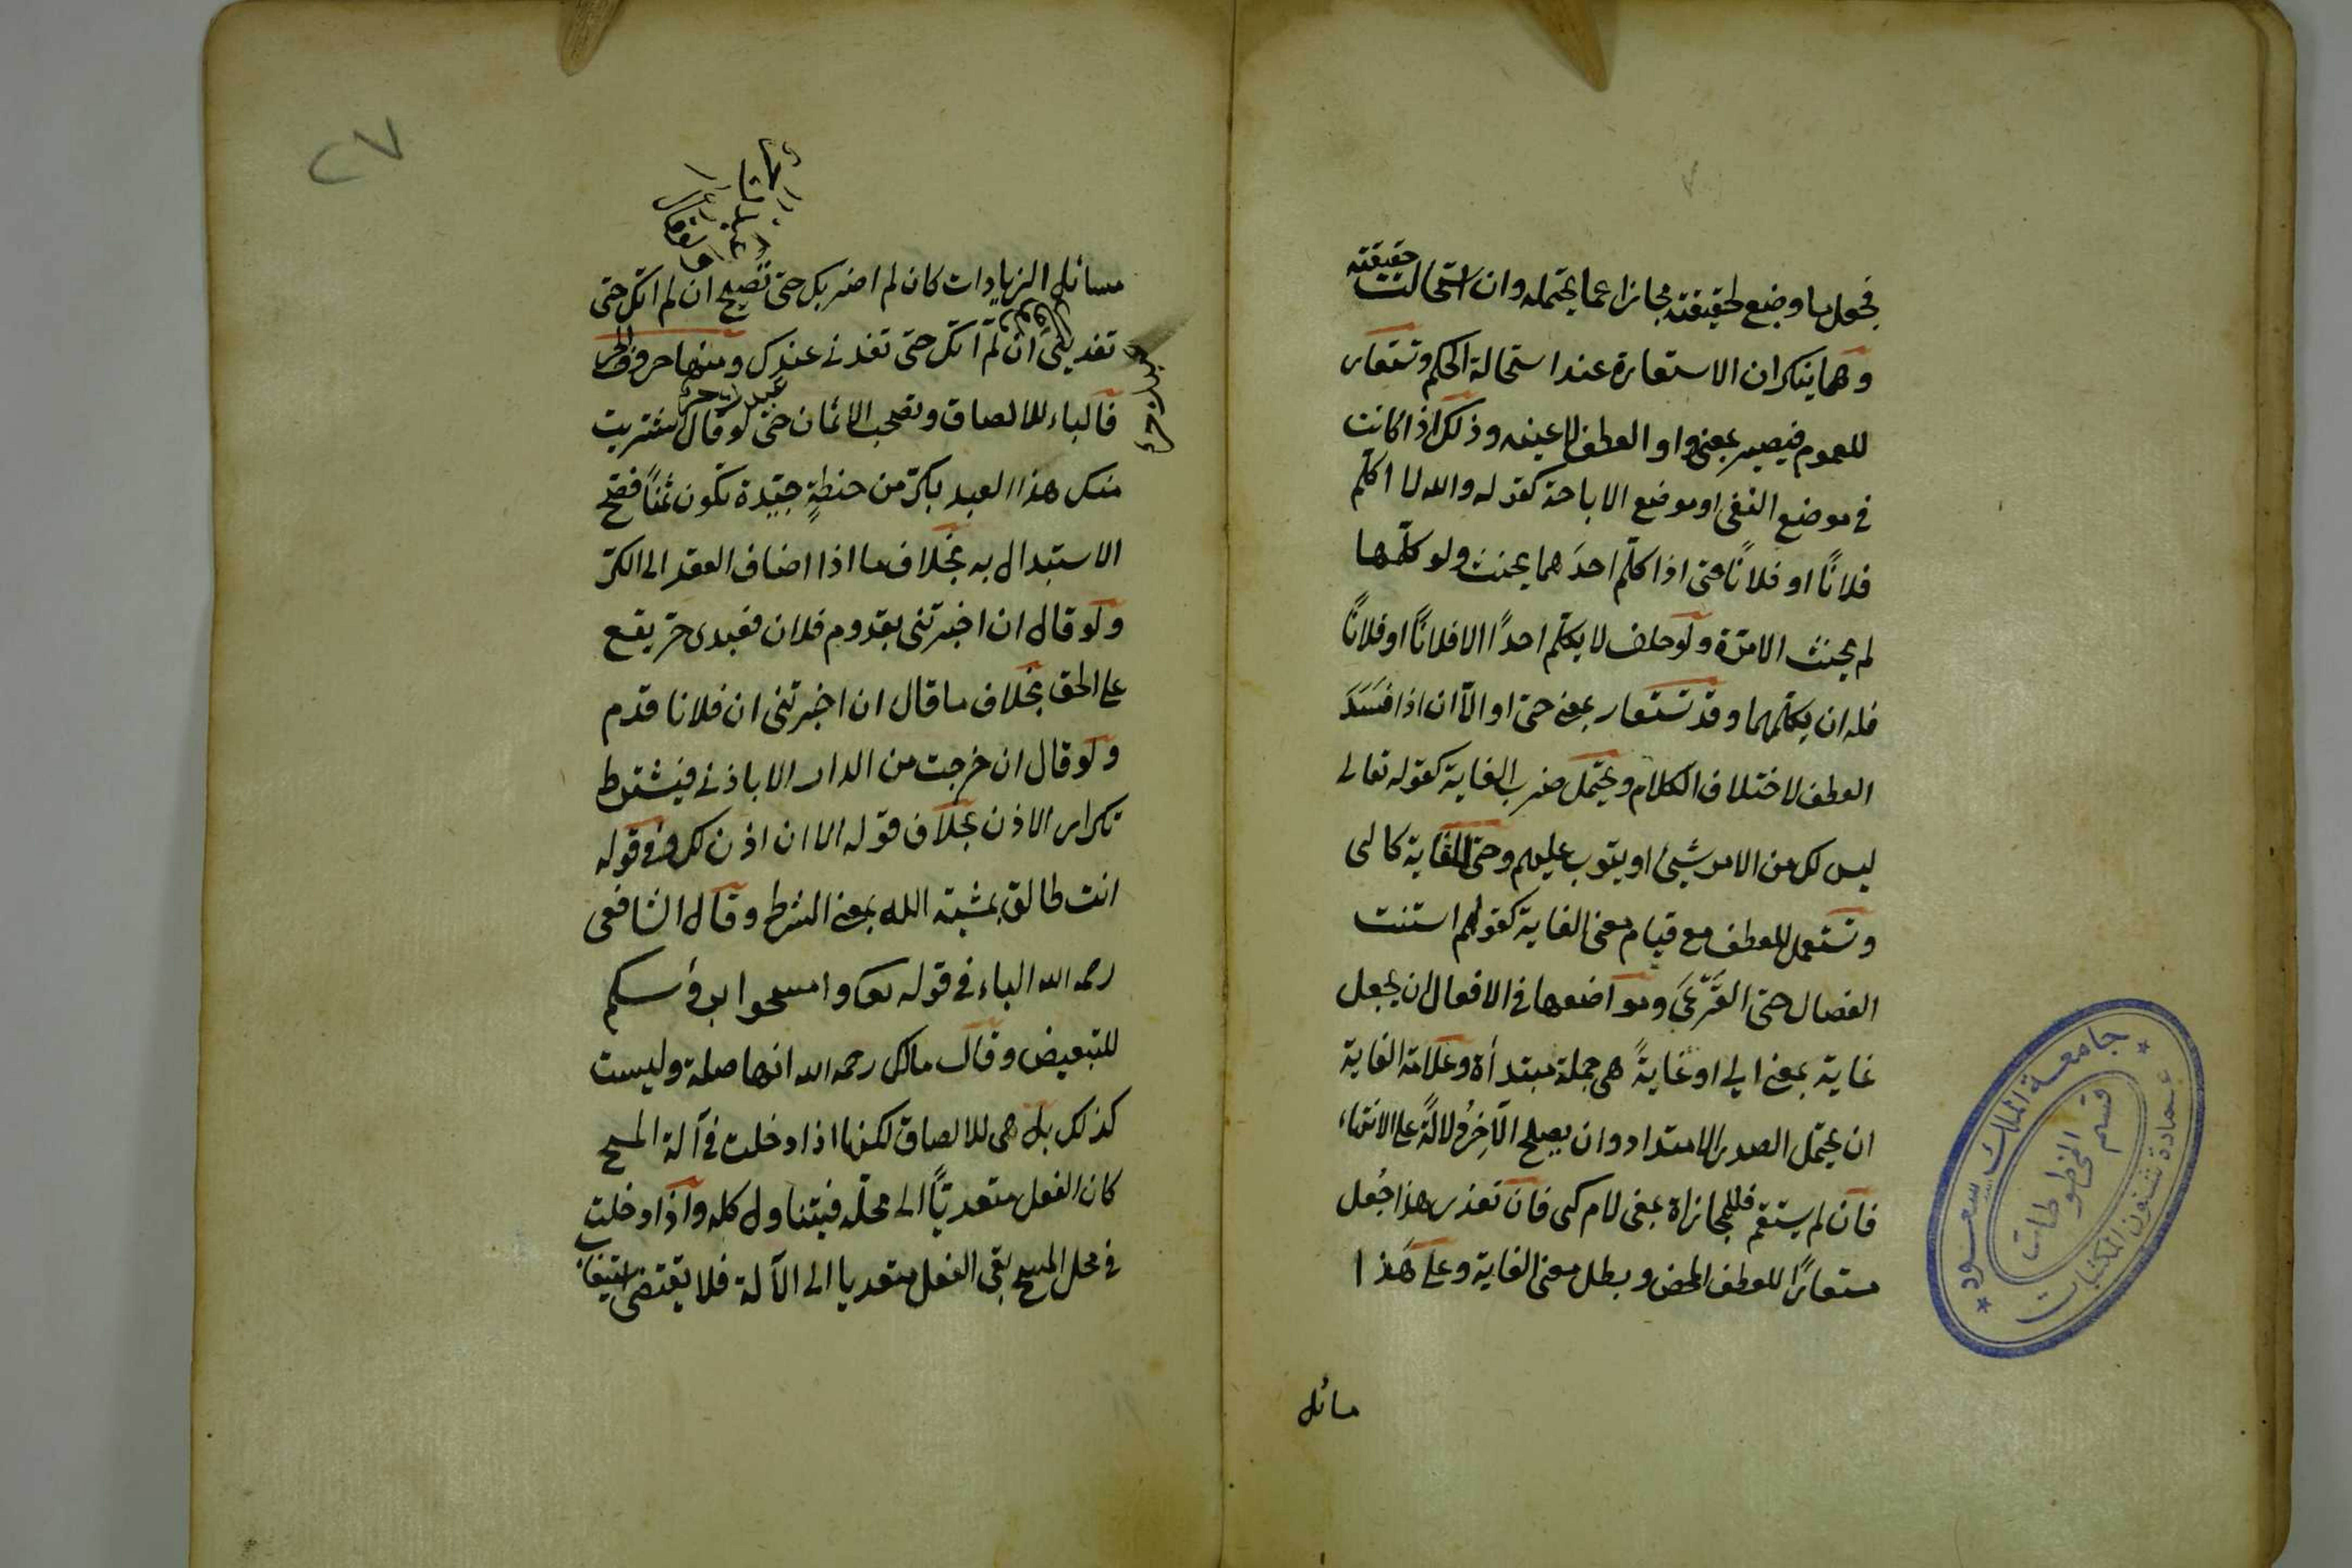 فجعل ما وضع لحقيقته مجازا عما يحتمله وان استحالت حقيقته
وهما ينكران الاستعارة عند استحالة الحكم وتستعار
للعموم فيصير بمعنى واو العطف لا عينه وذلك اذا كانت
في موضع النفي او موضع الاباحة كقوله والله لا اكلم
فلانًا او فلانًا حتى اذا كلّم احدَهما يحنث ولو كلّمها
لم يحنث الا مرّة ولو حلف لا يكلّم احدًا الا فلانًا او فلانًا
فله ان يكلّمهما وقد تستعار بمعنى حتى او الّا ان اذا فَسَدَ
العطف لاختلاف الكلام ويحتمل ضرب الغاية كقوله تعالى
ليس لك من الامر شيئ او يتوب عليهم وحتى للغاية كالى
وتستعمل للعطف مع قيام معنى الغاية كقولهم استنت
الفصال حتى القَرْعَى ومواضعها في الافعال ان يجعل
غاية بمعنى الى او غايةً هي جملة مبتدأة وعلامة الغاية
ان يحتمل الصدر الامتداد وان يصلح الآخِرُ دلالةً على الانتهاء
فان لم يستقم فللمجازاة بمعنى لام كى فان تعذر هذا جُعل
مستعارًا للعطف المحض وبطل معنى الغاية وعلى هَذا
مسائل
٢٧
مسائل الزيادات كان لم اضربك حتى تصيح ان لم اتك حتى
تغديني ان لم اتك حتى تغدى عندك ومنها حروف الجر
فالباء للالصاق وتصحب الاثمان حتى لو قال اشتريت
منك هذا العبد بكرّ من حنطةٍ جيّدة تكون ثمنًا فصح
الاستبدال به بخلاف ما اذا اضاف العقد الى الكرّ
ولو قال ان اخبرتنى بقدوم فلان فعبدى حرّ يقع
على الحق بخلاف ما قال ان اخبرتنى ان فلانا قدم
ولو قال ان خرجت من الدار الا باذنى فيشترط
تكرار الاذن بخلاف قوله الا ان اذن لك وفى قوله
انت طالق بمشية الله بمعنى الشرط وقال الشافعى
رحمه الله الباء في قوله تعالى وامسحوا برؤسكم
للتبعيض وقال مالك رحمه الله انها صلة وليست
كذلك بل هى للالصاق لكنها اذا دخلت في آلة المسح
كان الفعل متعديًّا الى محلّه فيتناول كله واذا دخلت
في محل المسح بقى الفعل متعديا الى الآلة فلا يقتضى استيعاب
جامعة الملك سعود
عمادة شئون المكتبات
قسم المخطوطات